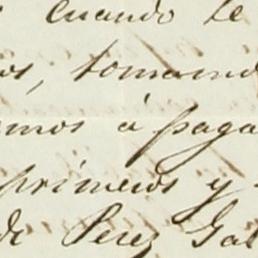 cuando te
os, tomand
emos á paga
primeros y
de Perez Gal